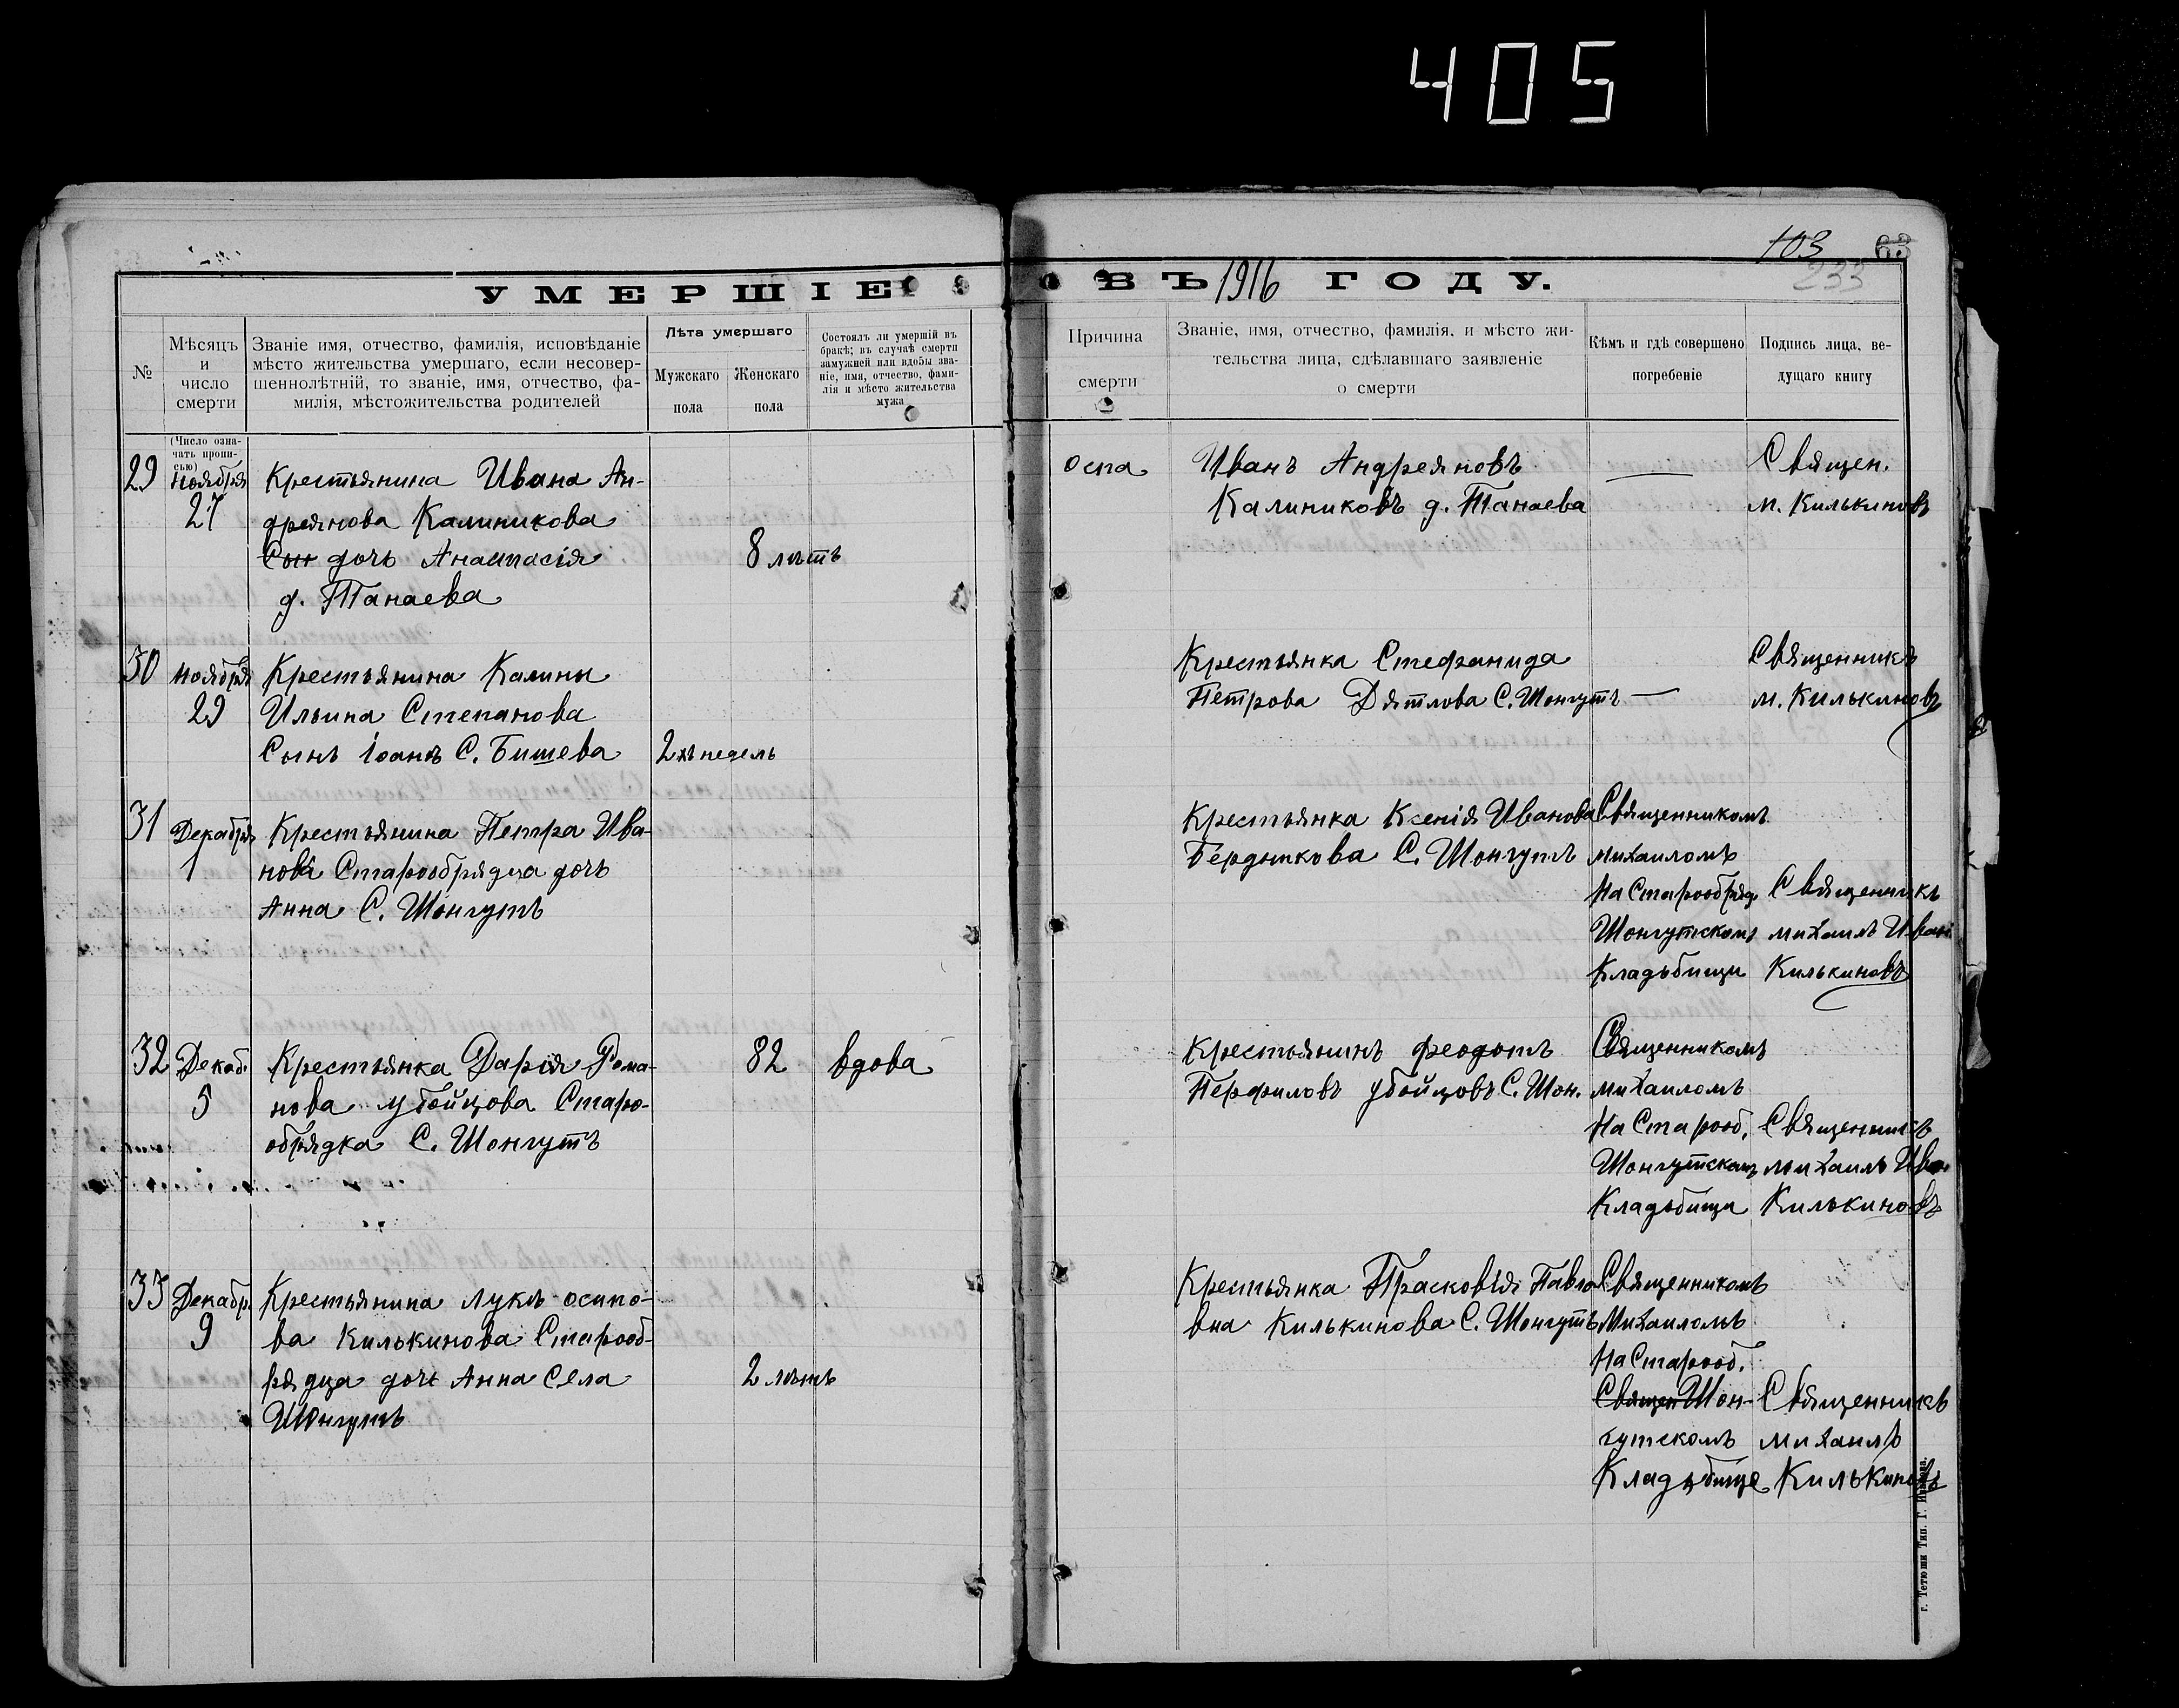 405
103
63
233
УМЕРШІЕ ВЪ 1916 ГОДУ.
№
Мѣсяцъ
и
число
смерти
Званіе имя, отчество, фамилія, исповѣданіе
мѣсто жительства умершаго, если несовер-
шеннолѣтній, то званіе, имя, отчество, фа-
милія, мѣстожительства родителей
Лѣта умершаго
Мужскаго
пола
Женскаго
пола
Состоялъ ли умершій въ
бракѣ; въ случаѣ смерти
замужней или вдовы зва-
ніе, имя, отчество, фами-
лія и мѣсто жительства
мужа
Причина
смерти
Званіе, имя, отчество, фамилія, и мѣсто жи-
тельства лица, сдѣлавшаго заявленіе
о смерти
Кѣмъ и гдѣ совершено
погребеніе
Подпись лица, ве-
дущаго книгу
(Число озна-
чать пропи-
сью)
29
Ноября
27
Крестьянина Ивана Ан-
дреянова Калиникова
Сын дочь Анастасія
д. Танаева
8 лѣтъ
оспа
Иванъ Андреяновъ
Калиниковъ д. Танаева
—
Священ.
М. Килькиновъ
30
Ноября
29
Крестьянина Калины
Ильина Степанова
Сынъ Іоанъ С. Бишева
2хъ недель
Крестьянка Стефанида
Петрова Дятлова С. Шонгутъ
—
Священникъ
М. Килькиновъ
31
Декабря
1
Крестьянина Петра Ива-
нова Старообрядца дочь
Анна С. Шонгутъ
Крестьянка Ксенія Иванова
Бердникова С. Шонгутъ
Священникомъ
Михаиломъ
На Старообряд.
Шонгутскомъ
Кладьбищи
Священникъ
Михаилъ Иван.
Килькиновъ
32
Декаб.
5
Крестьянка Дарія Рома-
нова Убойцова Старо-
обрядка С. Шонгутъ
82
вдова
Крестьянинъ Феодотъ
Перфиловъ Убойцовъ С. Шон.
Священникомъ
Михаиломъ
На Старооб.
Шонгутскомъ
Кладьбища
Священникъ
Михаилъ Иван.
Килькиновъ
33
Декабр.
9
Крестьянина Лукѣ Осипо-
ва Килькинова Старооб-
рядца дочь Анна Села
Шонгутъ
2 лѣтъ
Крестьянка Прасковія Павло-
вна Килькинова С. Шонгутъ
Священникомъ
Михаиломъ
На Старооб.
Священ Шон-
гутскомъ
Кладьбище
Священникъ
Михаилъ
Килькиновъ